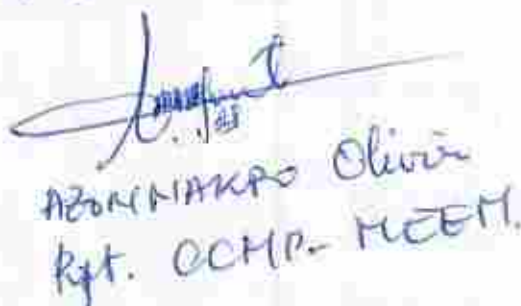 AZONNAKPO Olivier
Rpt. CCMP- MEEM.